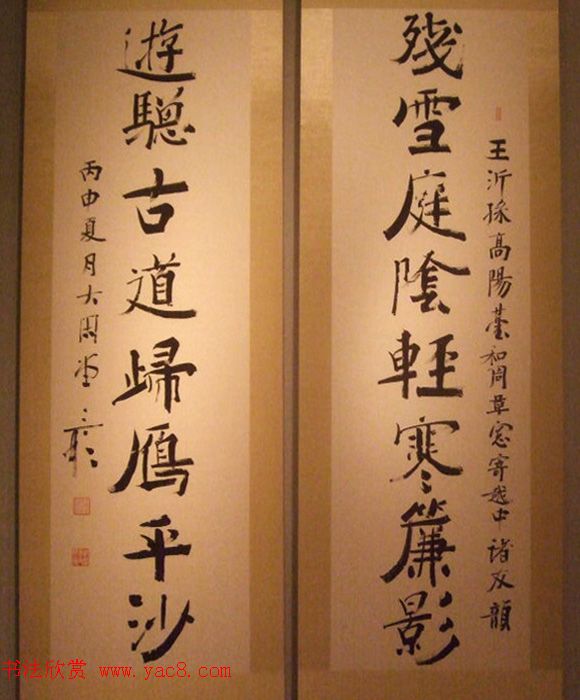 王沂孫高陽臺和周草窗寄越中諸友韻
殘雪庭陰輕寒簾影
遊驄古道歸鴈平沙
丙申夏月
书法欣赏 www.yac8.com